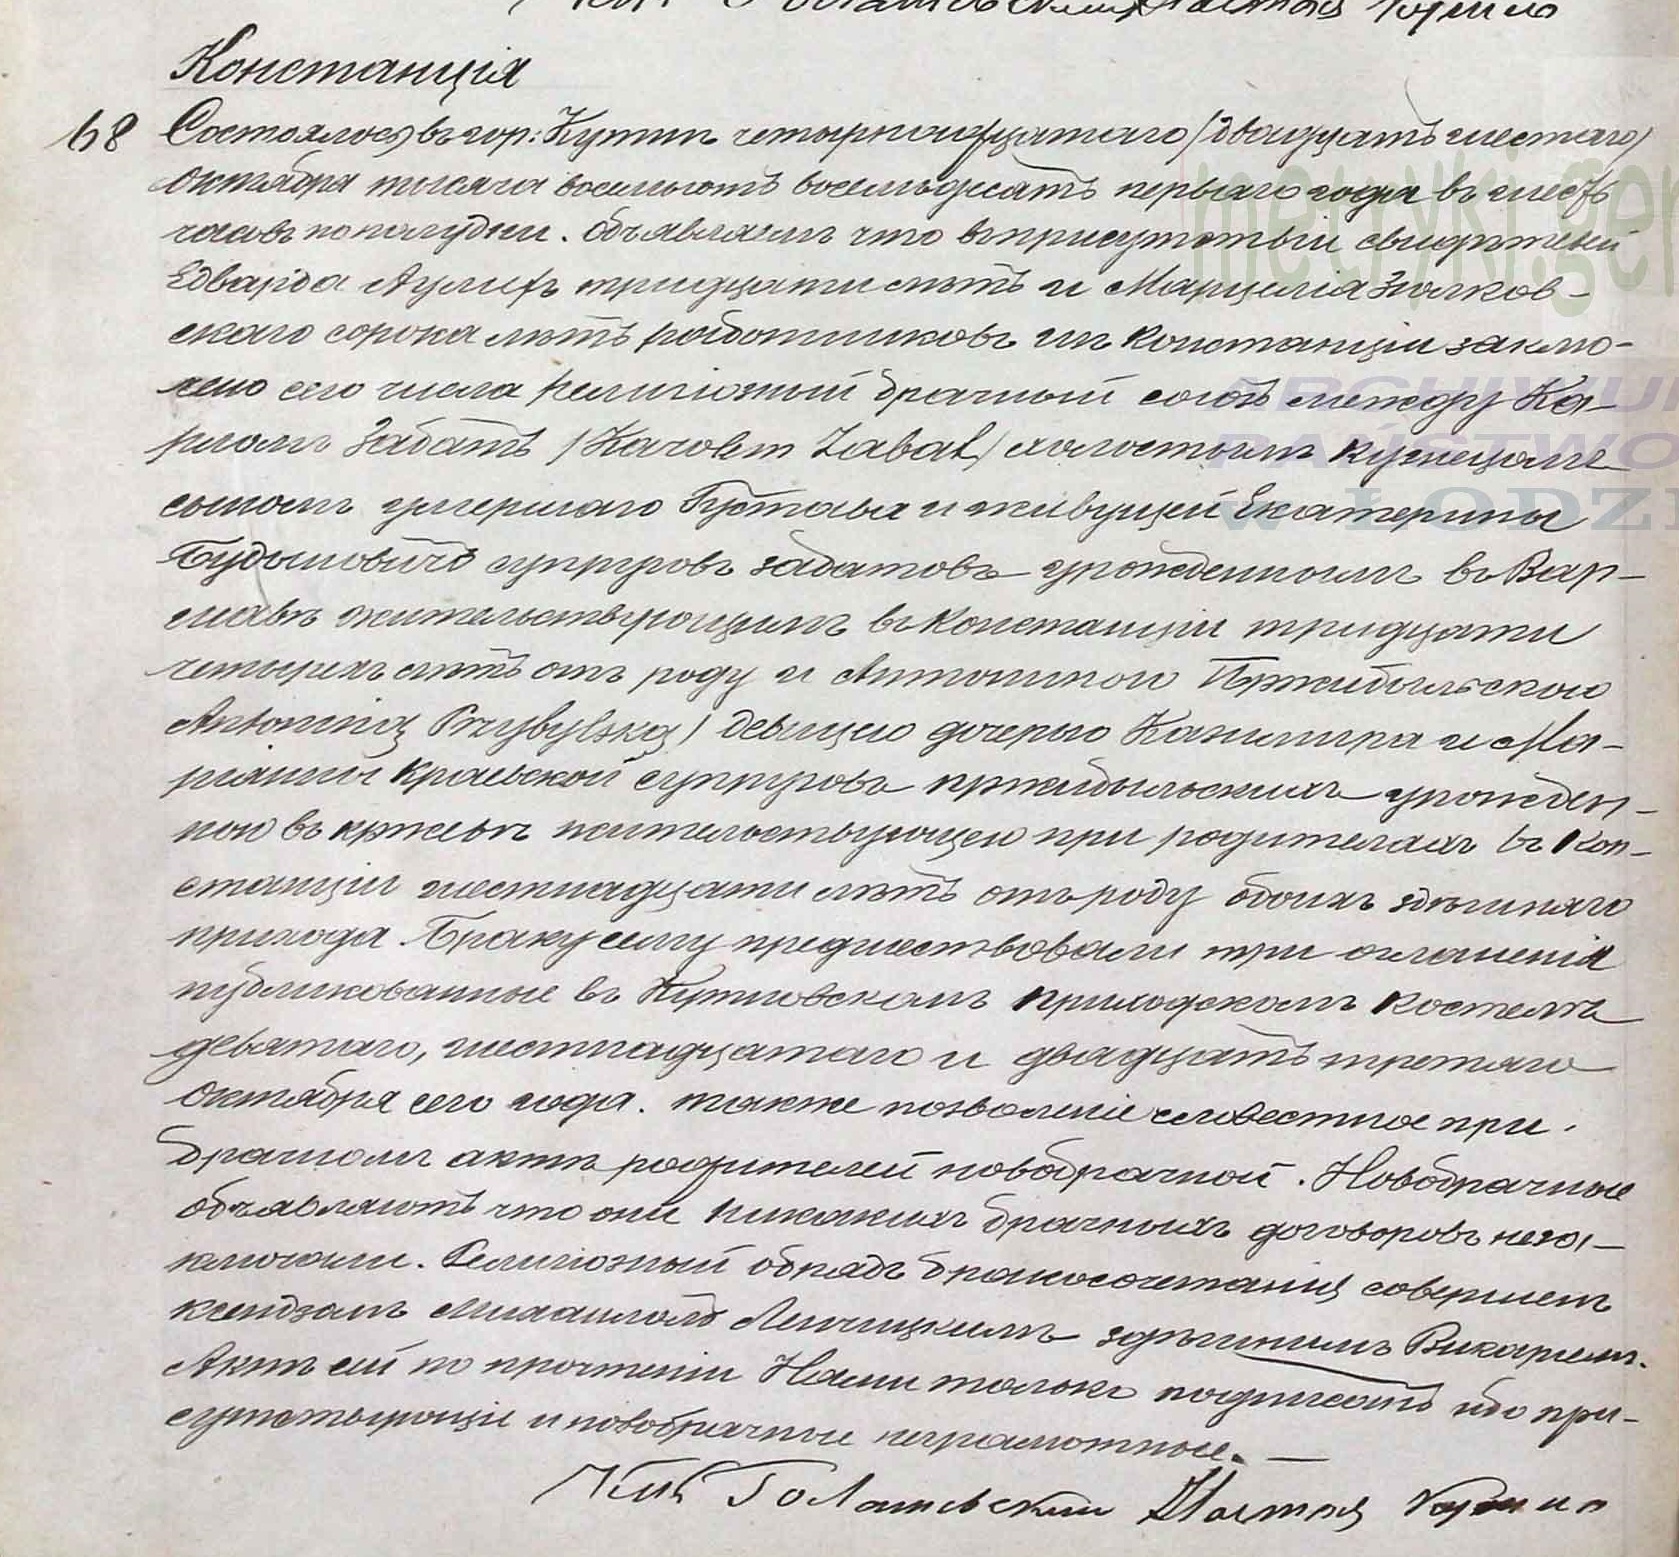 Констанція
68 Состоялось въ гор: Кутнѣ четырнадцатаго /двадцать шестаго/
Октября тысяча восемьсотъ восемьдесятъ перваго года въ шесть
часовъ пополудни. Объявляемъ что въ присутствіи свидѣтелей
Едварда тридцати лѣтъ и Марцелія Зюлков-
скаго сорока лѣтъ работниковъ изъ Констанціи заклю-
чено сего числа религіозный брачный союзъ между Ка-
роломъ Забатъ /Karolem Zabat/ холостымъ кузнецомъ
сыномъ умершаго Густава и живущей Екатерины
супруговъ Забатовъ урожденнымъ въ Вар-
шавѣ жительствующимъ въ Констанціи тридцати
четырехъ лѣтъ отъ роду и Антониною Пржибыльскою
Antoniną Przybylską/ девицею дочерью Казимира и Ма-
ріанны Краевской супруговъ Пржибыльскихъ урожден-
ною въ жительствующею при родителяхъ въ Кон-
станціи шестнадцати лѣтъ отъ роду обоихъ здѣшняго
прихода. Браку сему предшествовали три оглашенія
публикованные въ Кутновскомъ приходскомъ костелѣ
девятаго, шестнадцатаго и двадцать третяго
Октября сего года. также позволеніе словестное при
брачномъ актѣ родителей новобрачной. Новобрачные
объявляютъ что они никакихъ брачныхъ договоровъ неза-
ключили. Религіозный обрядъ бракосочетанія совершенъ
ксендзомъ Михаиломъ Ленчицкимъ здѣшнимъ Викаріемъ.
Актъ сей по прочтеніи Нами только подписанъ ибо при-
сутствующіе и новобрачные неграмотные.—
metryki.gen
ARCHIWUM
PAŃSTWO
w ŁODZI